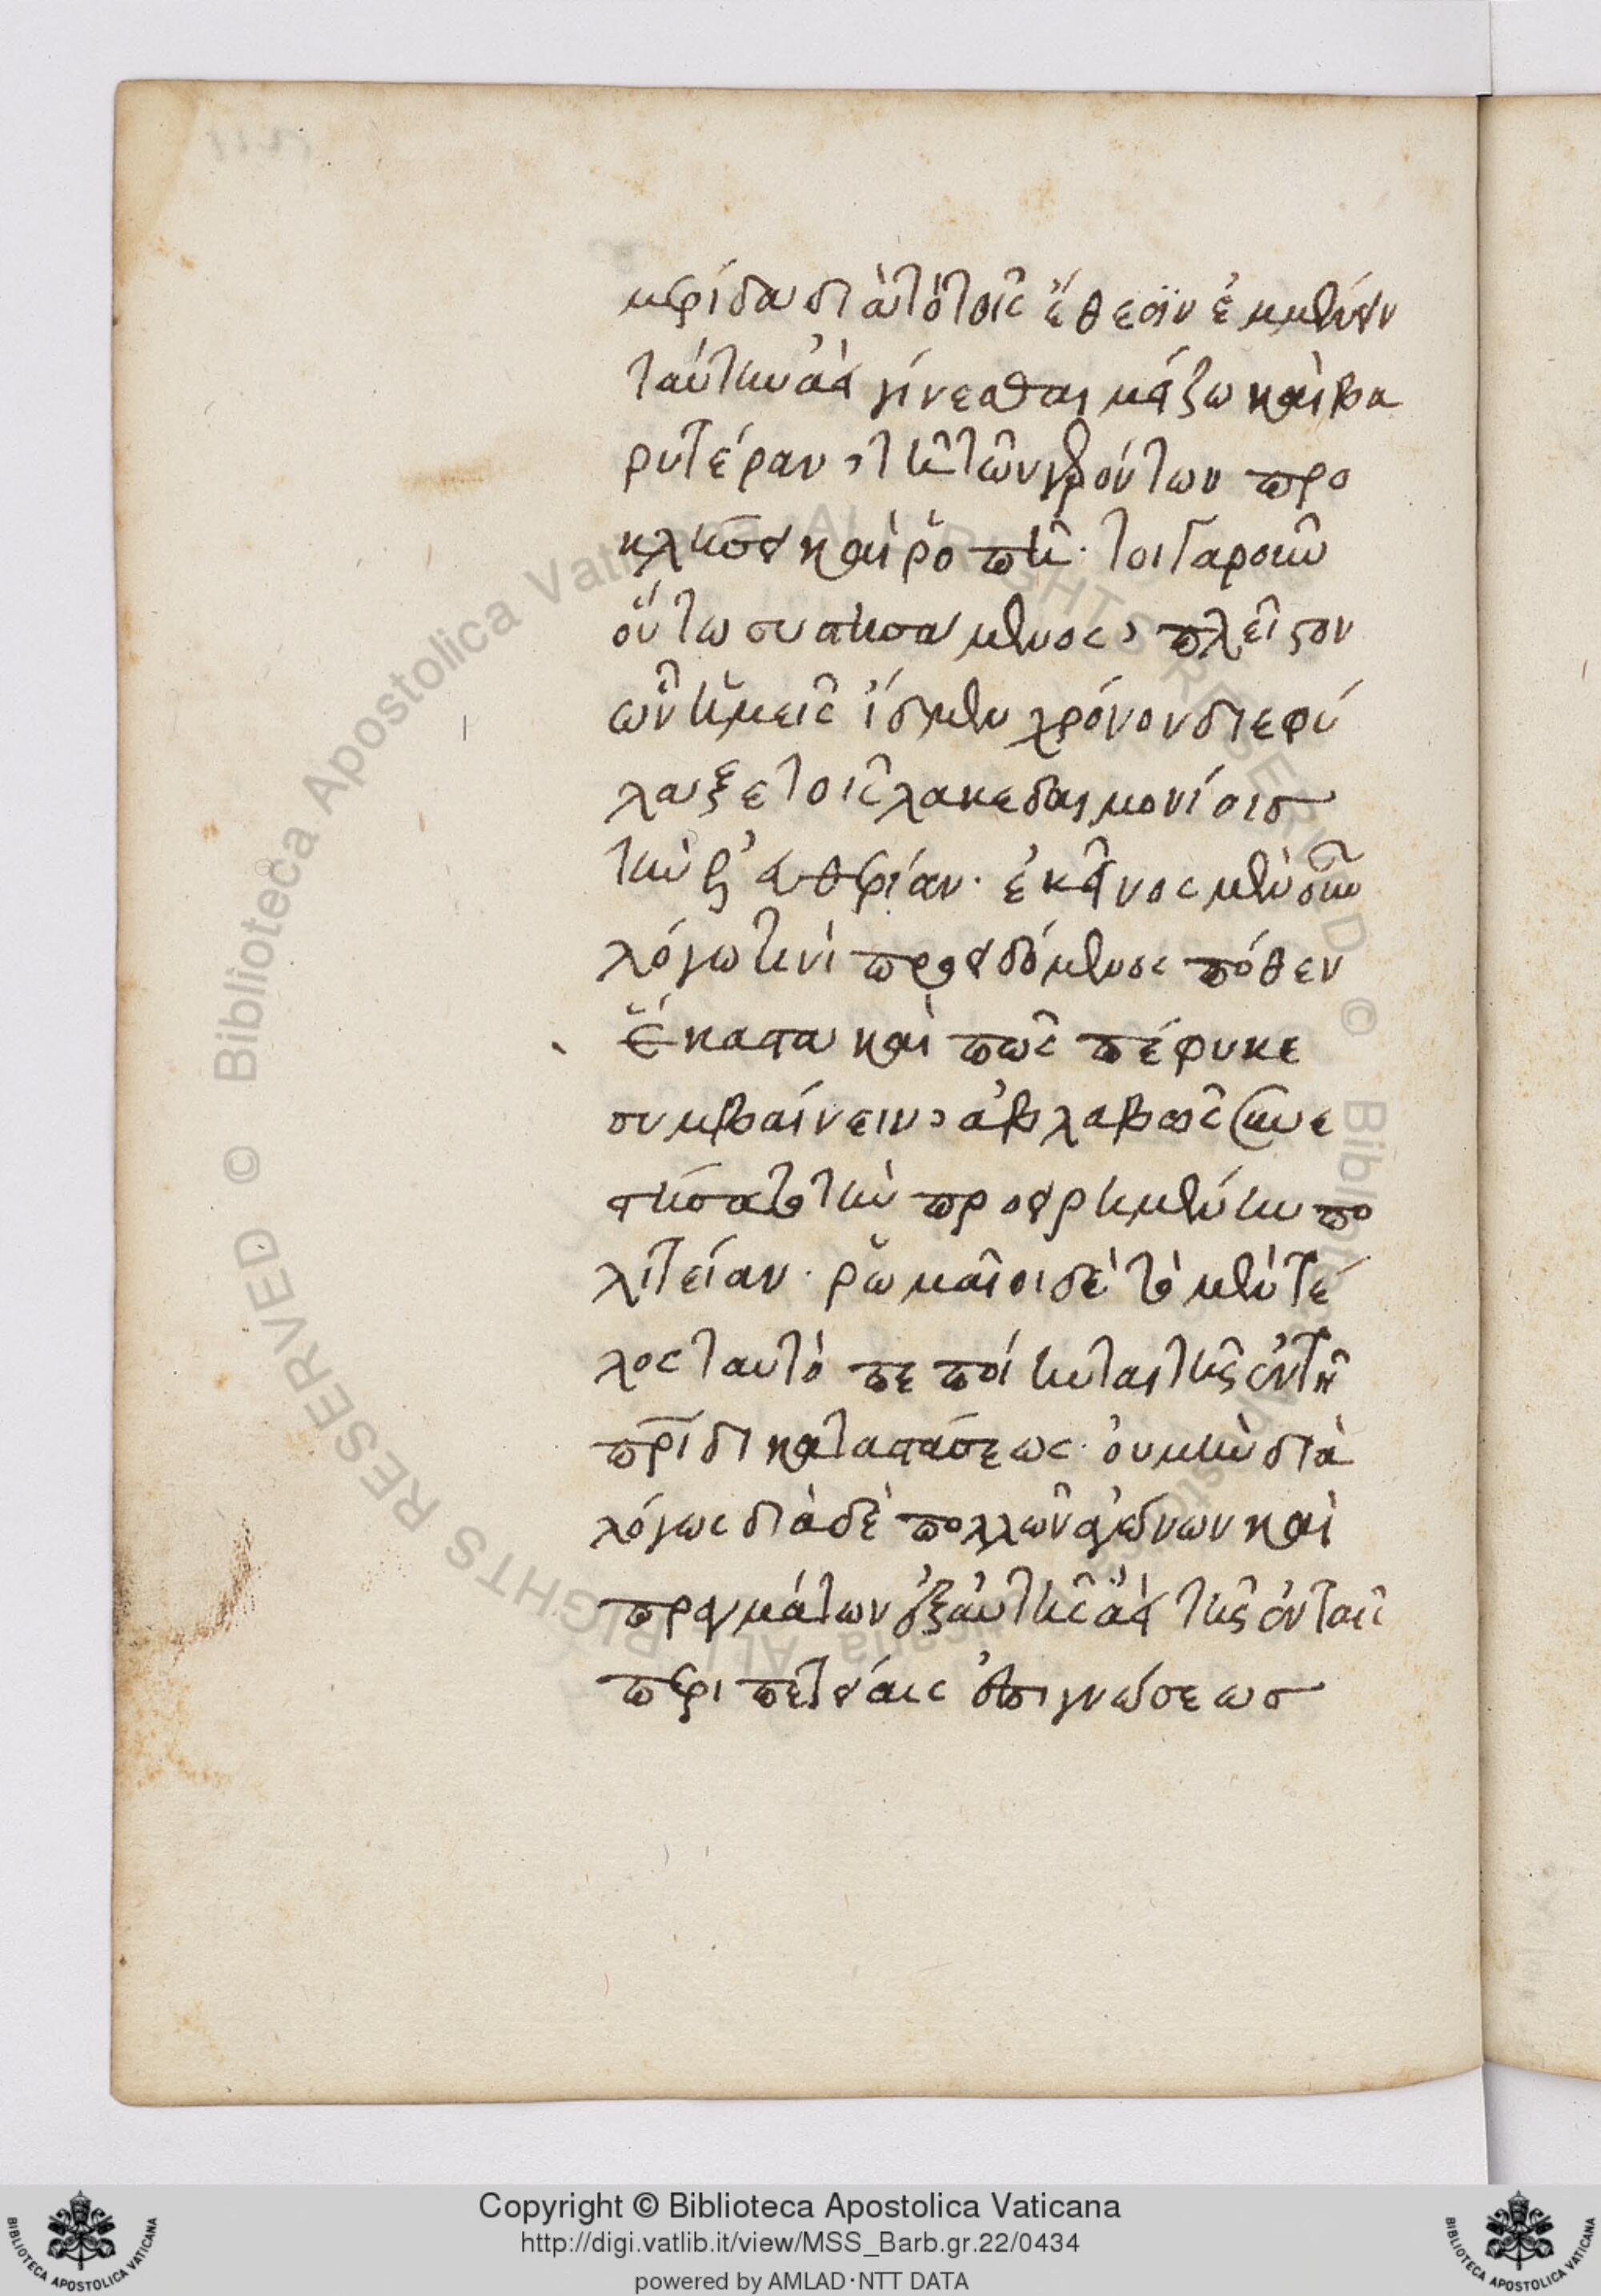 μερίδα διὰ τὸ τοῖς ἔθεσιν ἐμμένειν
ταύτην ἀεὶ γίνεσθαι μείζω καὶ βα
ρυτέραν, τῆ τῶν γερόντων προ
κλήσει καὶ ῥοπῆ· τοιγαροῦν
οὕτω συστησάμενος, πλεῖστον
ὧν ἡμεῖς ἴσμεν χρόνον διεφύ
λαξε τοῖς λακεδαιμονίοις
τὴν ἐλευθερίαν· ἐκεῖνος μὲν οὖν
λόγω τινὶ προϊδόμενος πόθεν
ἕκαστα καὶ πῶς πέφυκε
συμβαίνειν, ἀβλαβῶς συνε
στήσατο τὴν προειρημένην πο
λιτείαν· ῥωμαῖοι δὲ τὸ μὲν τέ
λος ταυτὸ πεποίηνται τῆς ἐν τῆ
πρίδι καταστάσεως· οὐ μὴν διὰ
λόγου διὰ δὲ πολλῶν ἀγώνων καὶ
πραγμάτων ἐξ αὐτῆς ἀεὶ τῆς ἐν ταῖς
περιπετείαις ἐπιγνώσεως
Copyright © Biblioteca Apostolica Vaticana
http://digi.vatlib.it/view/MSS_Barb.gr.22/0434
powered by AMLAD·NTT DATA
© Biblioteca Apostolica Vaticana ALL RIGHTS RESERVED
© Biblioteca Apostolica Vaticana ALL RIGHTS RESERVED
BIBLIOTECA APOSTOLICA VATICANA
BIBLIOTECA APOSTOLICA VATICANA